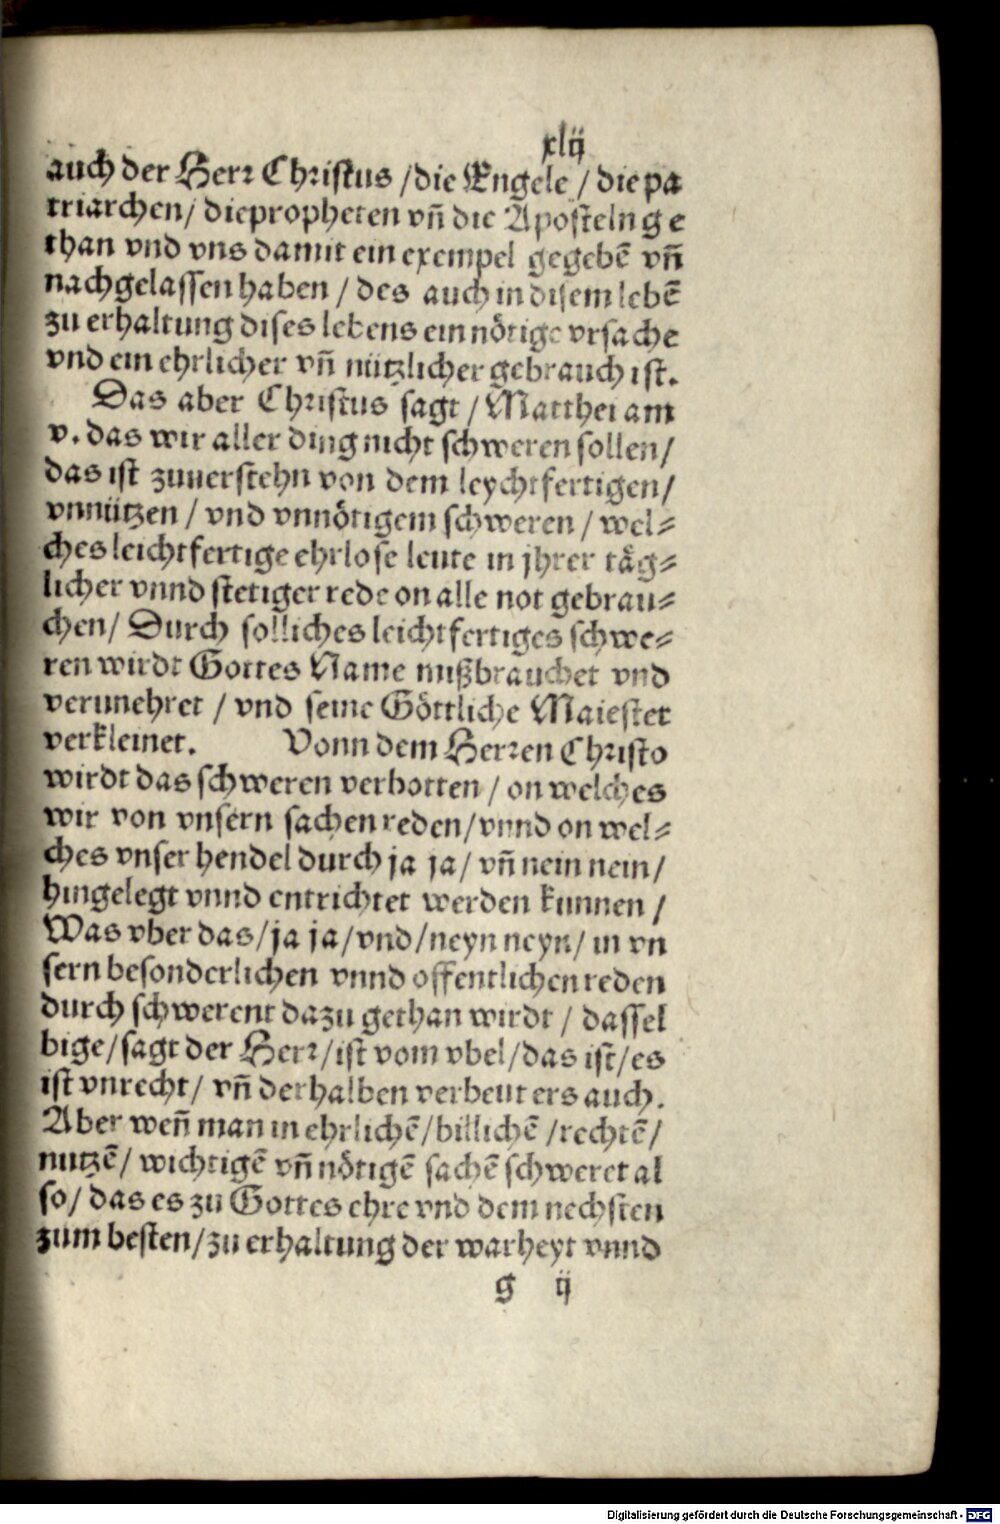 xlij
auch der Herr Christus /die Engele / die pa
triarchen/ die propheten vñ die Aposteln g e
than vnd vns damit ein exempel gegebē vñ
nachgelassen haben / des auch in disem lebē
zu erhaltung dises lebens ein nötige vrsache
vnd ein ehrlicher vñ nützlicher gebrauch ist.
Das aber Christus sagt / Matthei am
v. das wir aller ding nicht schweren sollen/
das ist zuuerstehn von dem leychtfertigen/
vnnützen / vnd vnnötigem schweren / wel⸗
ches leichtfertige ehrlose leute in jhrer täg⸗
licher vnnd stetiger rede on alle not gebrau⸗
chen/ Durch solliches leichtfertiges schwe⸗
ren wirdt Gottes Name mißbrauchet vnd
verunehret / vnd seine Göttliche Maiestet
verkleinet. Vonn dem Herren Christo
wirdt das schweren verbotten / on welches
wir von vnsern sachen reden/vnnd on wel⸗
ches vnser hendel durch ja ja/ vñ nein nein/
hingelegt vnnd entrichtet werden kunnen /
Was vber das/ja ja/vnd/neyn neyn/ in vn
sern besonderlichen vnnd offentlichen reden
durch schwerent dazu gethan wirdt / dassel
bige/sagt der Herr/ist vom vbel/das ist/es
ist vnrecht/ vñ derhalben verbeut ers auch.
Aber weñ man in ehrlichē/billichē /rechtē/
nutzē/ wichtigē vñ nötigē sachē schweret al
so/ das es zu Gottes ehre vnd dem nechsten
zum besten/zu erhaltung der warheyt vnnd
g ij
Digitalisierung gefördert durch die Deutsche Forschungsgemeinschaft - DFG